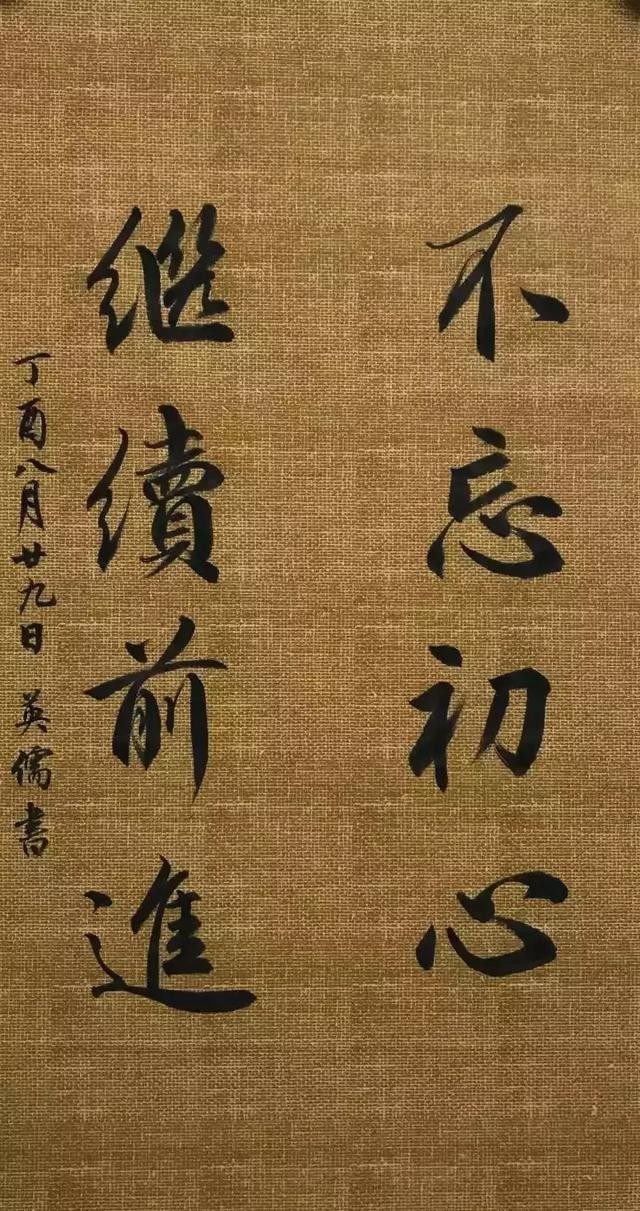 不忘初心
继續前進
丁酉八月廿九日 英儒書